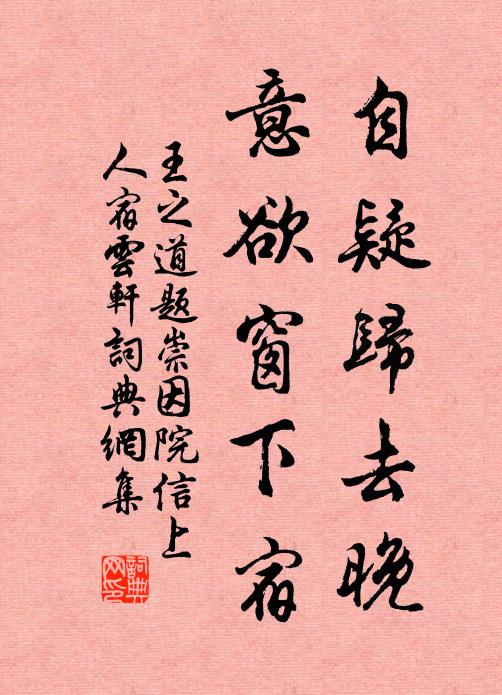 自疑歸去晚
意欲窗下宿
王之道題崇因院信上
人宿雲軒詞典網集
詞典
网印